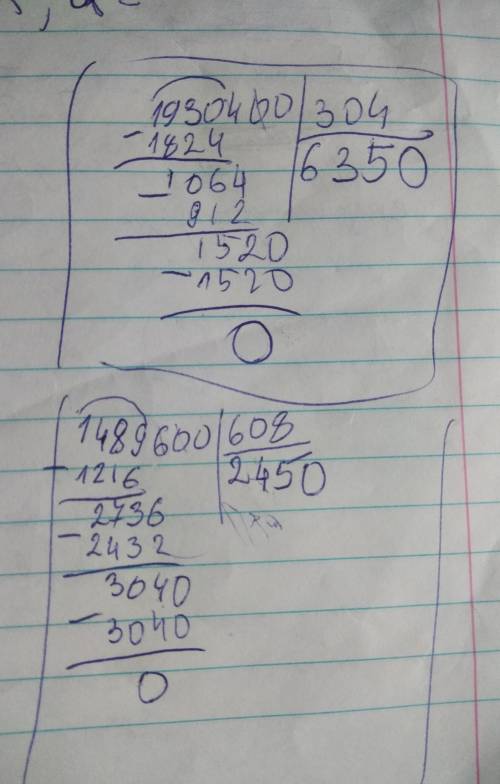 1930400 304
-1824 6350
-1064
912
1520
-1520
0
1489600 608
-1216 2450
2736
-2432
3040
-3040
0